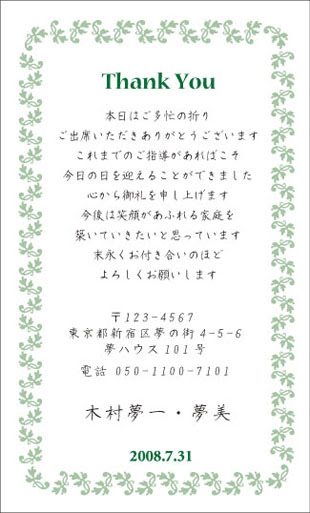 Thank You
本日はご多忙の折り
ご出席いただきありがとうございます
これまでのご指導があればこそ
今日の日を迎えることができました
心から御礼を申し上げます
今後は笑顔があふれる家庭を
築いていきたいと思っています
末永くお付き合いのほど
よろしくお願いします
〒123-4567
東京都新宿区夢の街4-5-6
夢ハウス101号
電話 050-1100-7101
木村夢一・夢美
2008.7.31